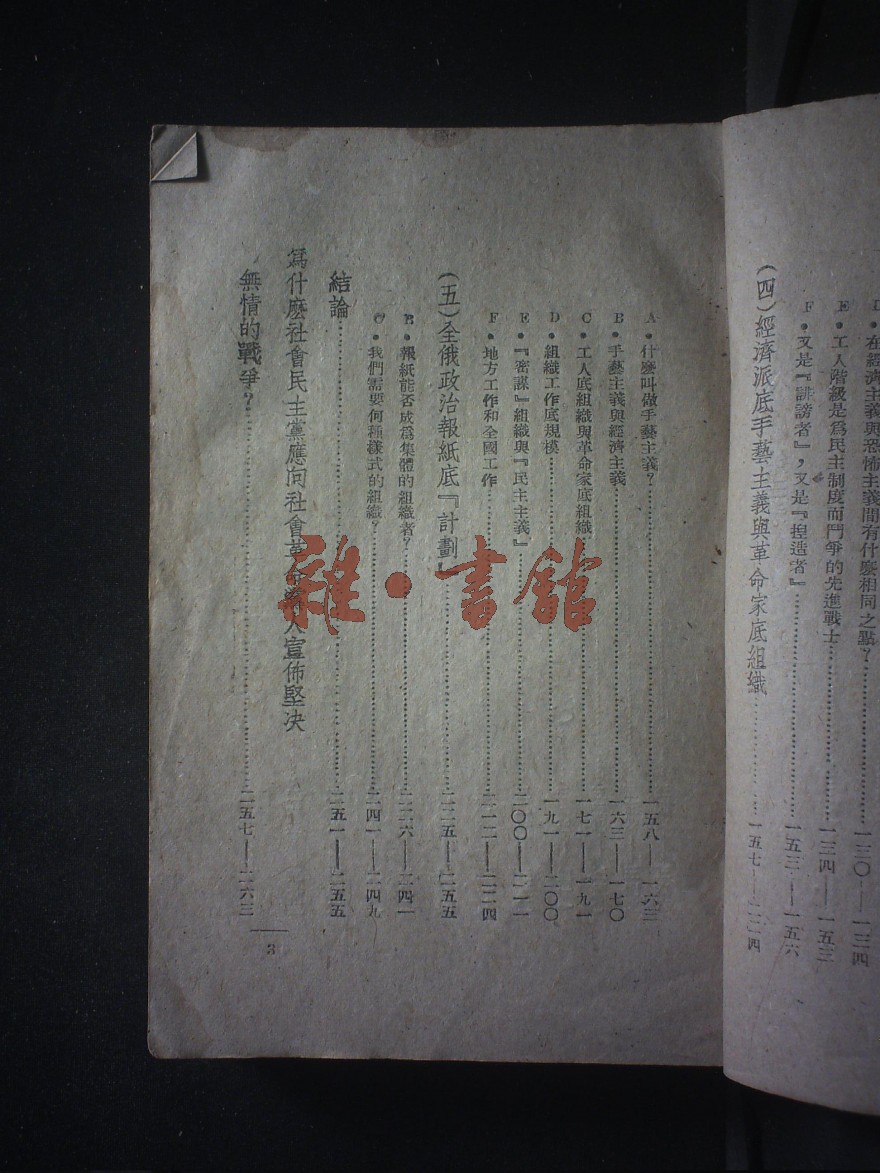 D．在經濟主義與恐怖主義間有什麼相同之點？……一三〇——一三四
E．工人階級是爲民主制度而鬥爭的先進戰士……一三四——一五三
F．又是『誹謗者』，又是『揑造者』……一五三——一五六
(四)經濟派底手藝主義與革命家底組織……一五七——二二四
A．什麼叫做手藝主義？……一五八——一六三
B．手藝主義與經濟主義……一六三——一七〇
C．工人底組織與革命家底組織……一七一——一九一
D．組織工作底規模……一九一——二〇〇
E．『密謀』組織與『民主主義』……二〇〇——二一一
F．地方工作和全國工作……二一二——二二四
(五)全俄政治報紙底『計劃』……二二五——二五五
B．報紙能否成爲集體的組織者？……二二六——二四一
C．我們需要何種樣式的組織？……二四一——二四九
結論……二五一——二五五
爲什麼社會民主黨應向社會革命黨人宣佈堅決
無情的戰爭？……二五七——二六三
3
雜·書館